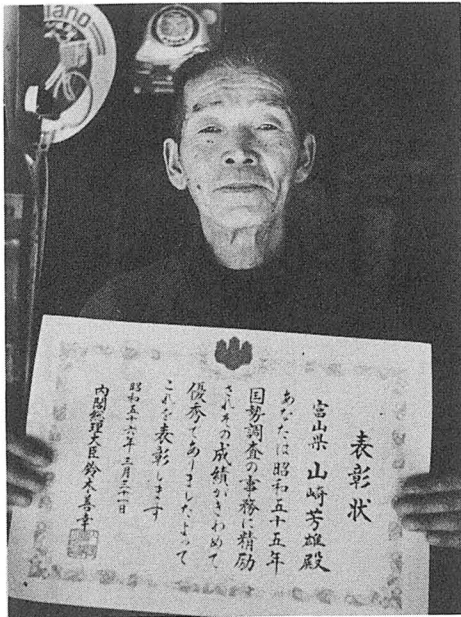 lano
表彰状
富山県 山崎芳雄殿
あなたは昭和五十五年
国勢調査の事務に精励
されその成績がきわめて
優秀でありましたよって
これを表彰します
昭和五十六年三月三十一日
内閣総理大臣 鈴木善幸